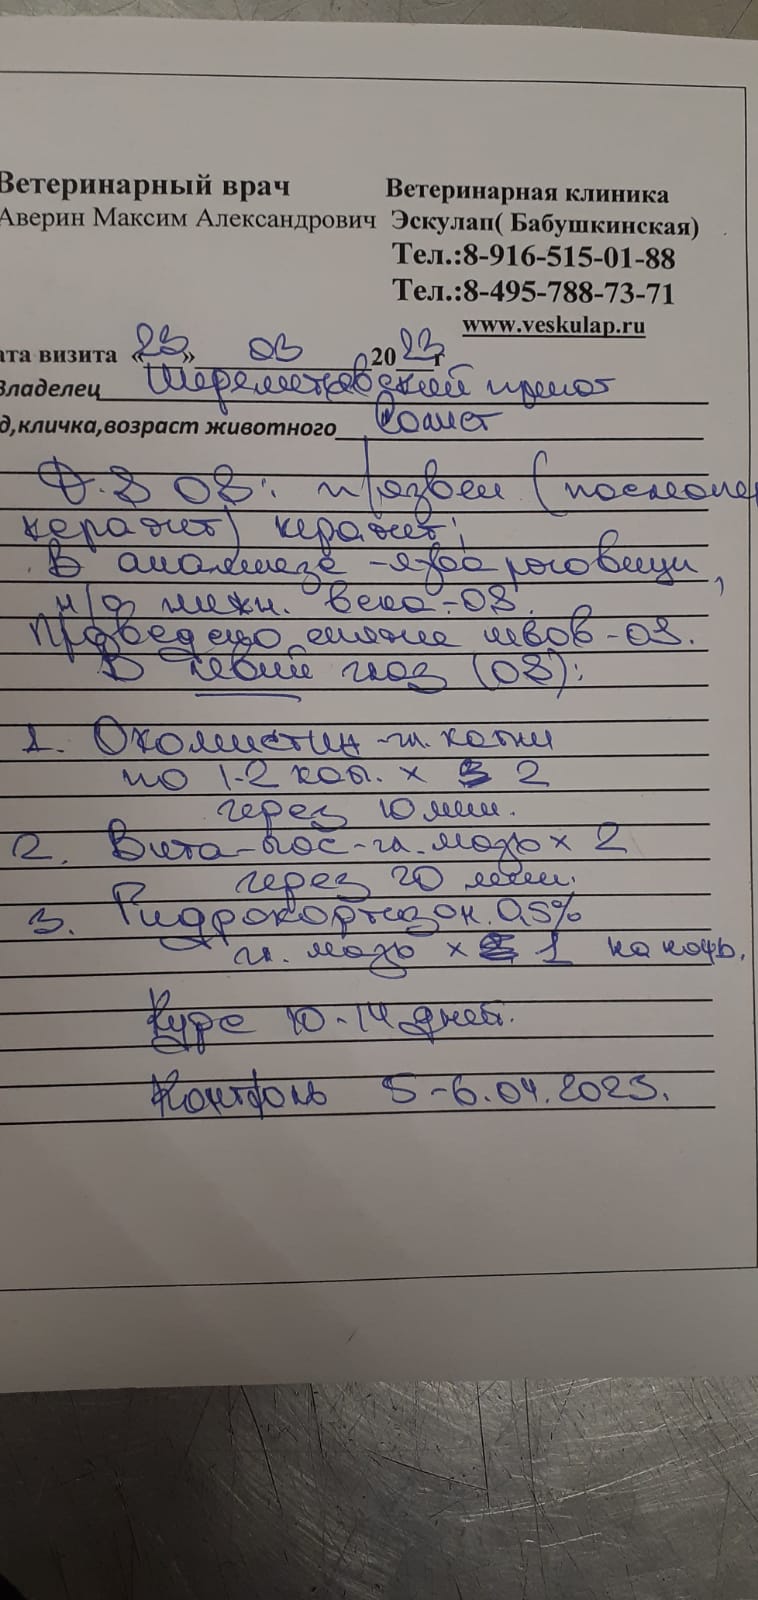 Ветеринарный врач
Ветеринарная клиника
Аверин Максим Александрович
Эскулап( Бабушкинская)
Тел.:8-916-515-01-88
Тел.:8-495-788-73-71
www.veskulap.ru
ата визита «23» 03 2023г
Владелец Шереметьевский приют
д,кличка,возраст животного Комет
Д.З OS: п/язвен (послеопер
кератит) кератит;
В анамнезе - язва роговицы,
н/д нижн. века - OS.
Проведено снятие швов - OS.
В левый глаз (OS):
1. Окомистин - гл. капли
по 1-2 кап. х 2
через 10 мин.
2. Вита-пос - гл. мазь х 2
через 20 мин.
3. Гидрокортизон 0,5%
гл. мазь х 1 на ночь.
Курс 10-14 дней.
Контроль 5-6.04.2023.